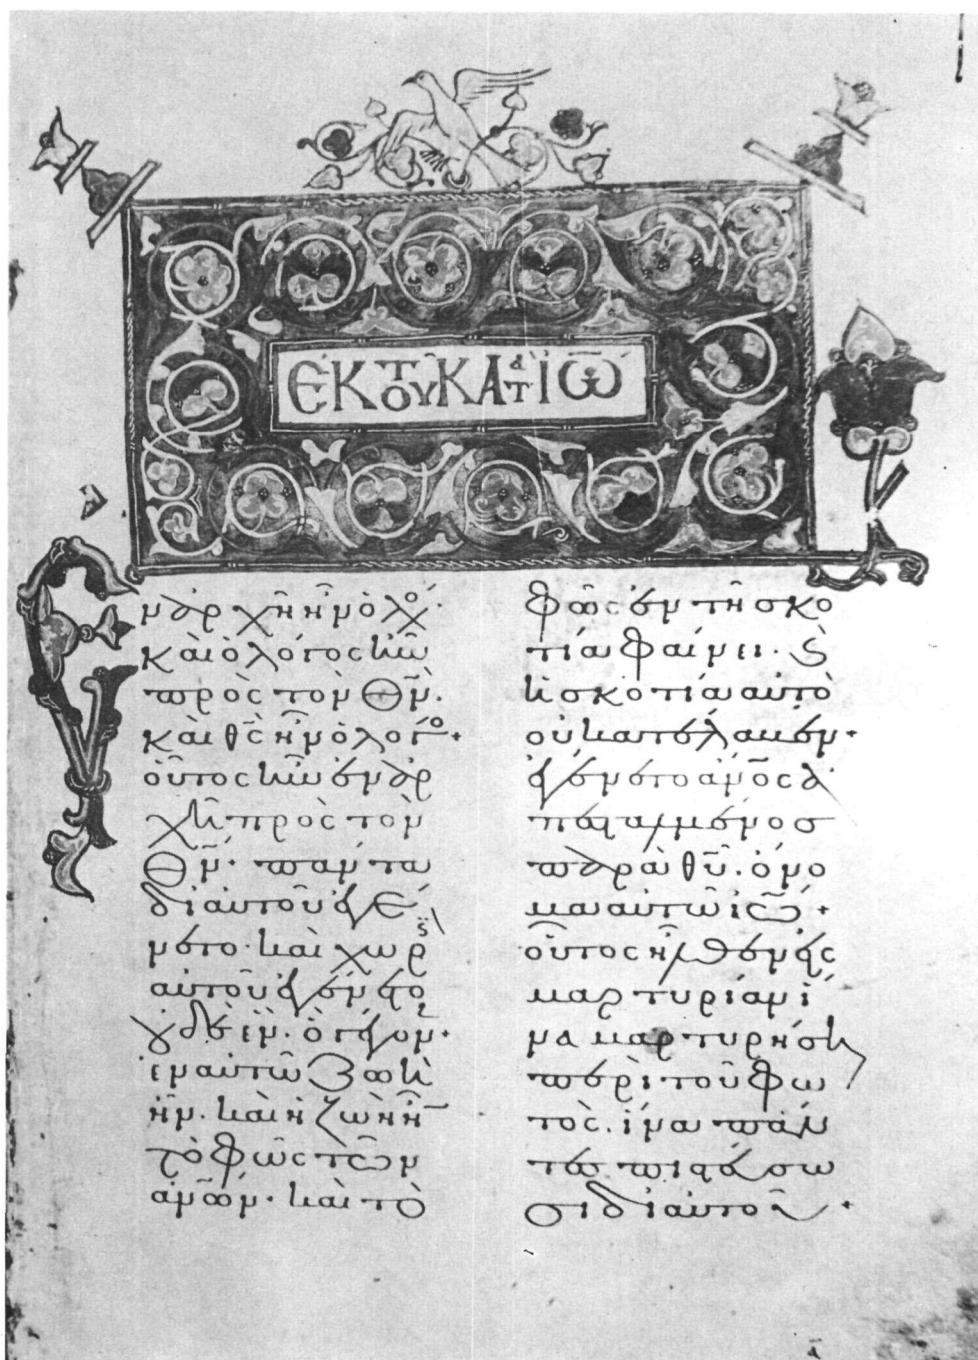 ἐκ τοῦ κατ ἰω
ν ἀρχῆ ἦν ὁ λο·
καὶ ὁ λόγος ἦν
πρὸς τὸν θν̄.
καὶ θς̄ ἦν ὁ λογο+
οὗτος ἦν ἐν ἀρ
χῆ πρὸς τὸν
θν̄. πάντα
δι αυτοῦ ἐγέ
νετο. καὶ χωρὶς
αὐτοῦ ἐγένετο
οὐδὲ εν. ὁ γέγον+
ἐν αὐτῶ ζωὴ
ἦν. καὶ ἡ ζωὴ ἦν
τὸ φῶς τῶν
ανων. καὶ τὸ
φῶς ἐν τῆ σκο
τία φαίνει. καὶ
ἡ σκοτία αὐτὸ
οὐ κατέλαβεν+
ἐγένετο ανος ἀ
πεσταλμένοσ
παρὰ θυ. ὄνο
μα αὐτῶ ιω+
οὗτος ἦλθεν εἰς
μαρτυρίαν ἵ
να μαρτυρήση
περὶ τοῦ φω
τὸς. ἵνα πάν
τες πιστεύσω
σι δι αὐτοῦ+